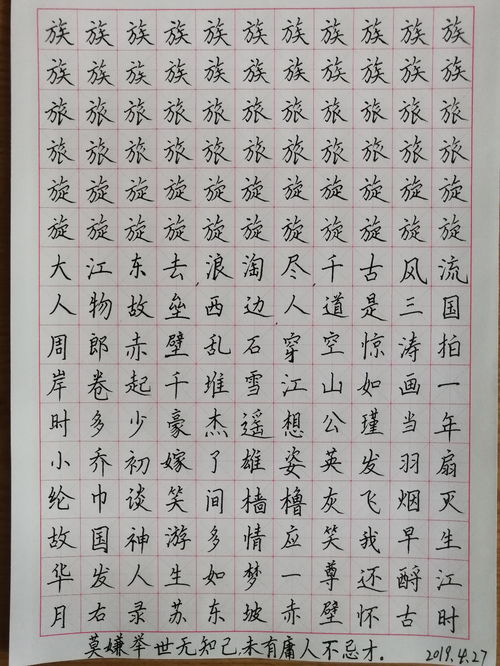 族族族族族族族族族族族
族族族族族族族族族族族
旅旅旅旅旅旅旅旅旅旅旅
旅旅旅旅旅旅旅旅旅旅旅
旋旋旋旋旋旋旋旋旋旋旋
旋旋旋旋旋旋旋旋旋旋旋
大江东去浪淘尽千古风流
人物故垒西边人道是三国
周郎赤壁乱石穿空惊涛拍
岸卷起千堆雪江山如画一
时多少豪杰遥想公瑾当年
小乔初嫁了雄姿英发羽扇
纶巾谈笑间樯橹灰飞烟灭
故国神游多情应笑我早生
华发人生如梦一尊还酹江
月右录苏东坡赤壁怀古时
莫嫌举世无知己,未有庸人不忌才. 2019.4.27